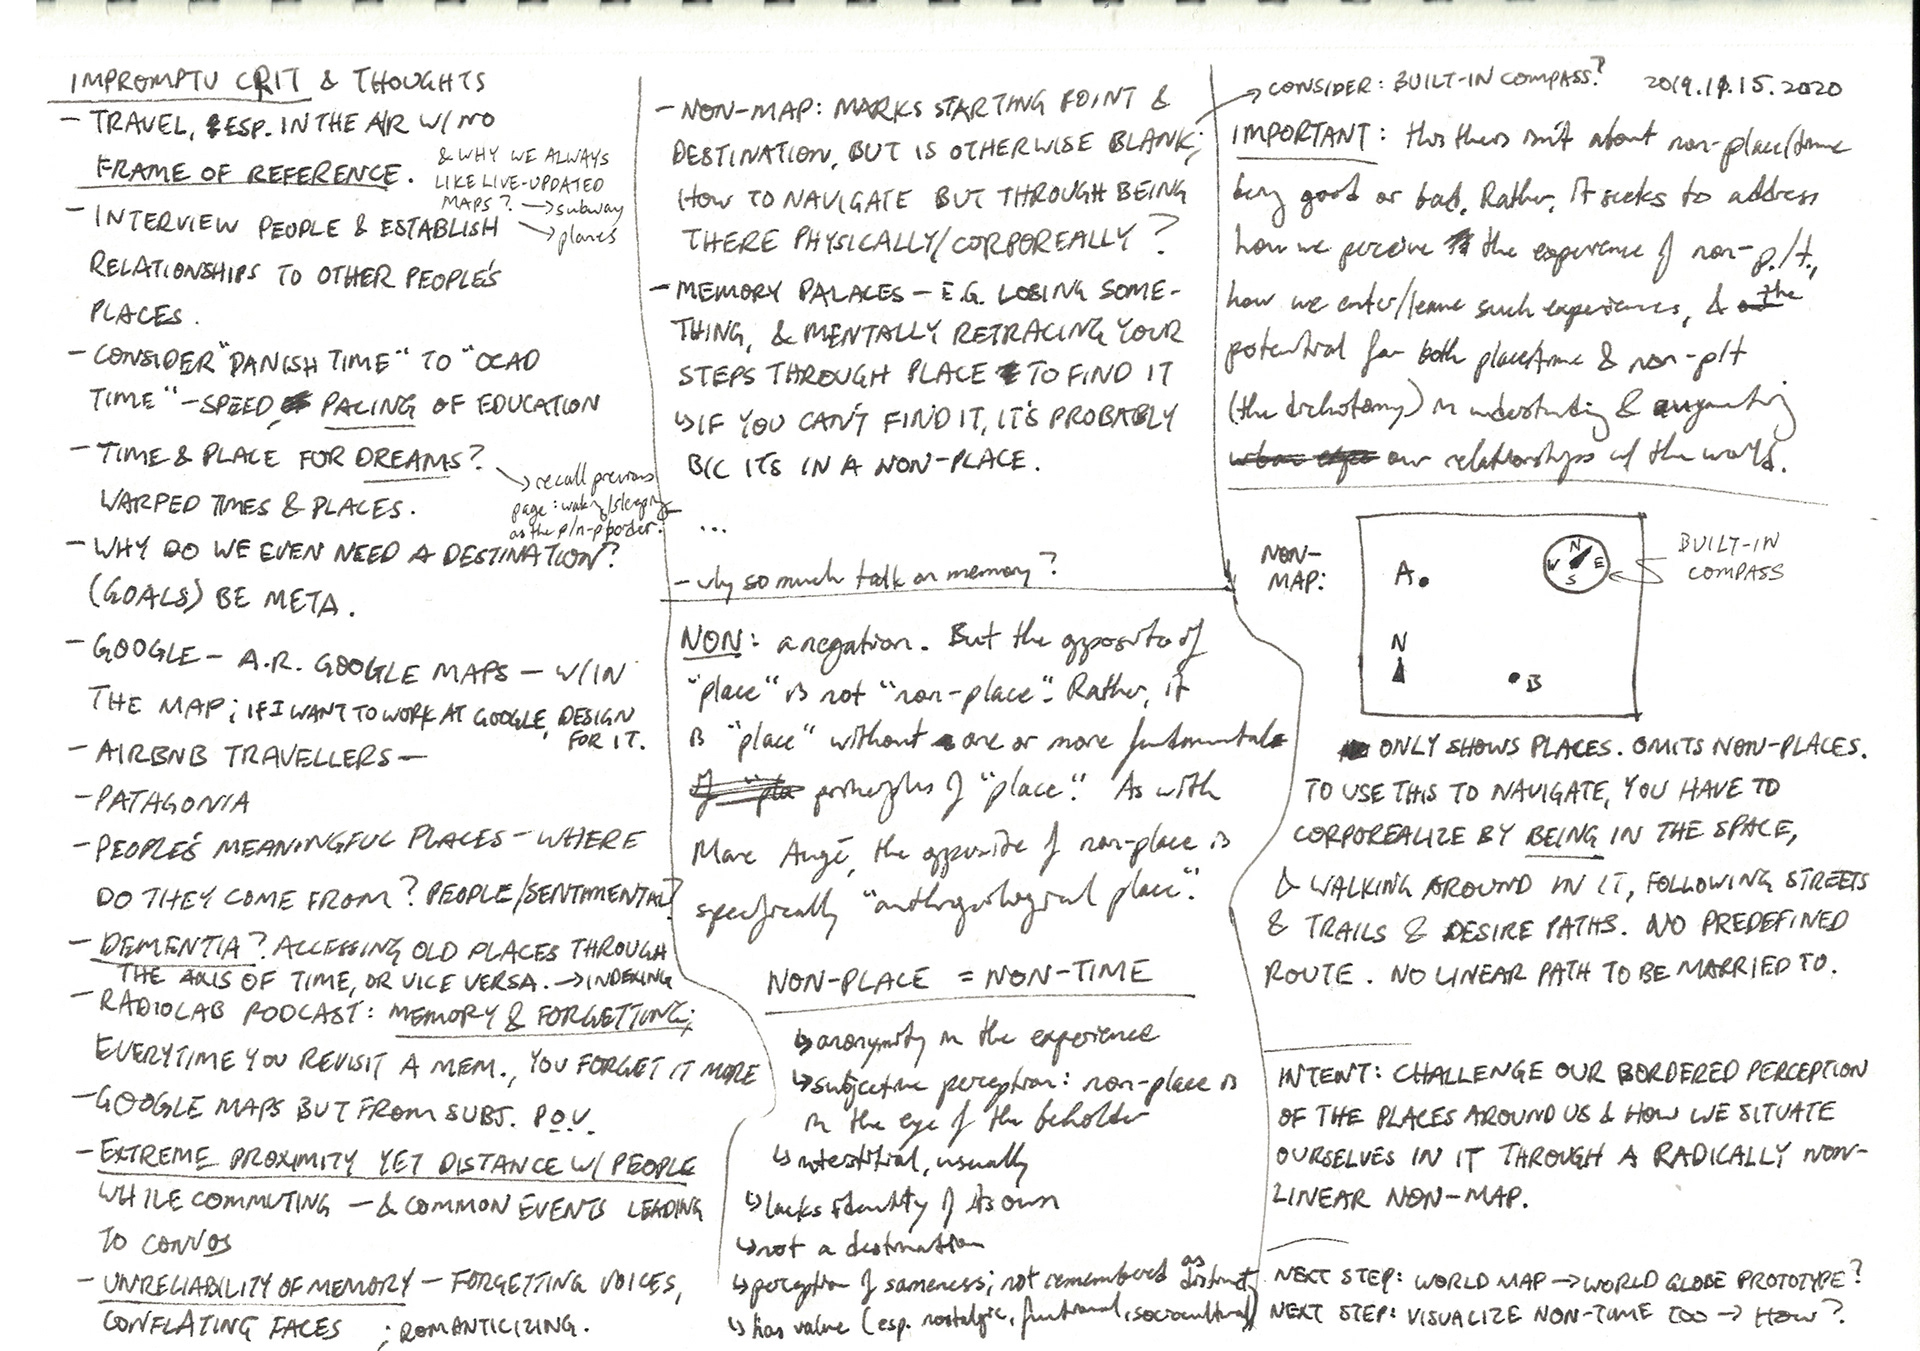 IMPROMPTU CRIT & THOUGHTS
- TRAVEL, ESP. IN THE AIR W/ NO
FRAME OF REFERENCE.
& WHY WE ALWAYS
LIKE LIVE-UPDATED
MAPS? → subway
→ planes
- INTERVIEW PEOPLE & ESTABLISH
RELATIONSHIPS TO OTHER PEOPLE'S
PLACES.
- CONSIDER "DANISH TIME" TO "OCAD
TIME" - SPEED, PACING OF EDUCATION
- TIME & PLACE FOR DREAMS?
WARPED TIMES & PLACES.
→ recall previous
page: waking/sleeping
as the p/n-p border.
- WHY DO WE EVEN NEED A DESTINATION?
(GOALS) BE META.
- GOOGLE - A.R. GOOGLE MAPS - W/IN
THE MAP; IF I WANT TO WORK AT GOOGLE, DESIGN
FOR IT.
- AIRBNB TRAVELLERS -
- PATAGONIA
- PEOPLE'S MEANINGFUL PLACES - WHERE
DO THEY COME FROM? PEOPLE/SENTIMENTAL?
- DEMENTIA? ACCESSING OLD PLACES THROUGH
THE AXIS OF TIME, OR VICE VERSA. → INDEXING
- RADIOLAB PODCAST: MEMORY & FORGETTING;
EVERYTIME YOU REVISIT A MEM., YOU FORGET IT MORE
- GOOGLE MAPS BUT FROM SUBJ. P.O.V.
- EXTREME PROXIMITY YET DISTANCE W/ PEOPLE
WHILE COMMUTING - & COMMON EVENTS LEADING
TO CONVOS
- UNRELIABILITY OF MEMORY - FORGETTING VOICES,
CONFLATING FACES ; ROMANTICIZING.
- NON-MAP: MARKS STARTING POINT &
DESTINATION, BUT IS OTHERWISE BLANK;
HOW TO NAVIGATE BUT THROUGH BEING
THERE PHYSICALLY/CORPOREALLY?
- MEMORY PALACES - E.G. LOSING SOME-
THING, & MENTALLY RETRACING YOUR
STEPS THROUGH PLACE TO FIND IT
↳ IF YOU CAN'T FIND IT, IT'S PROBABLY
B/C ITS IN A NON-PLACE.
- ...
- why so much talk on memory?
NON: a negation. But the opposite of
"place" is not "non-place". Rather, it
is "place" without one or more fundamental
principles of "place". As with
Marc Augé, the opposite of non-place is
specifically "anthropological place".
NON-PLACE = NON-TIME
↳ anonymity in the experience
↳ subjective perception: non-place is
in the eye of the beholder
↳ interstitial, usually
↳ lacks identity of its own
↳ not a destination
↳ perception of sameness; not remembered as distinct
↳ has value (esp. nostalgic, functional, sociocultural)
→ CONSIDER: BUILT-IN COMPASS?
2019.11.15.2020
IMPORTANT: this thesis isn't about non-place/time
being good or bad. Rather, it seeks to address
how we perceive the experience of non-p./t.,
how we enter/leave such experiences, & the
potential for both place/time & non-p/t
(the dichotomy) in understanding & augmenting
our relationships w/ the world.
NON-
MAP:
A
N
W E
S
BUILT-IN
COMPASS
N
B
ONLY SHOWS PLACES. OMITS NON-PLACES.
TO USE THIS TO NAVIGATE, YOU HAVE TO
CORPOREALIZE BY BEING IN THE SPACE,
& WALKING AROUND IN IT, FOLLOWING STREETS
& TRAILS & DESIRE PATHS. NO PREDEFINED
ROUTE. NO LINEAR PATH TO BE MARRIED TO.
INTENT: CHALLENGE OUR BORDERED PERCEPTION
OF THE PLACES AROUND US & HOW WE SITUATE
OURSELVES IN IT THROUGH A RADICALLY NON-
LINEAR NON-MAP.
NEXT STEP: WORLD MAP → WORLD GLOBE PROTOTYPE?
NEXT STEP: VISUALIZE NON-TIME TOO → HOW?